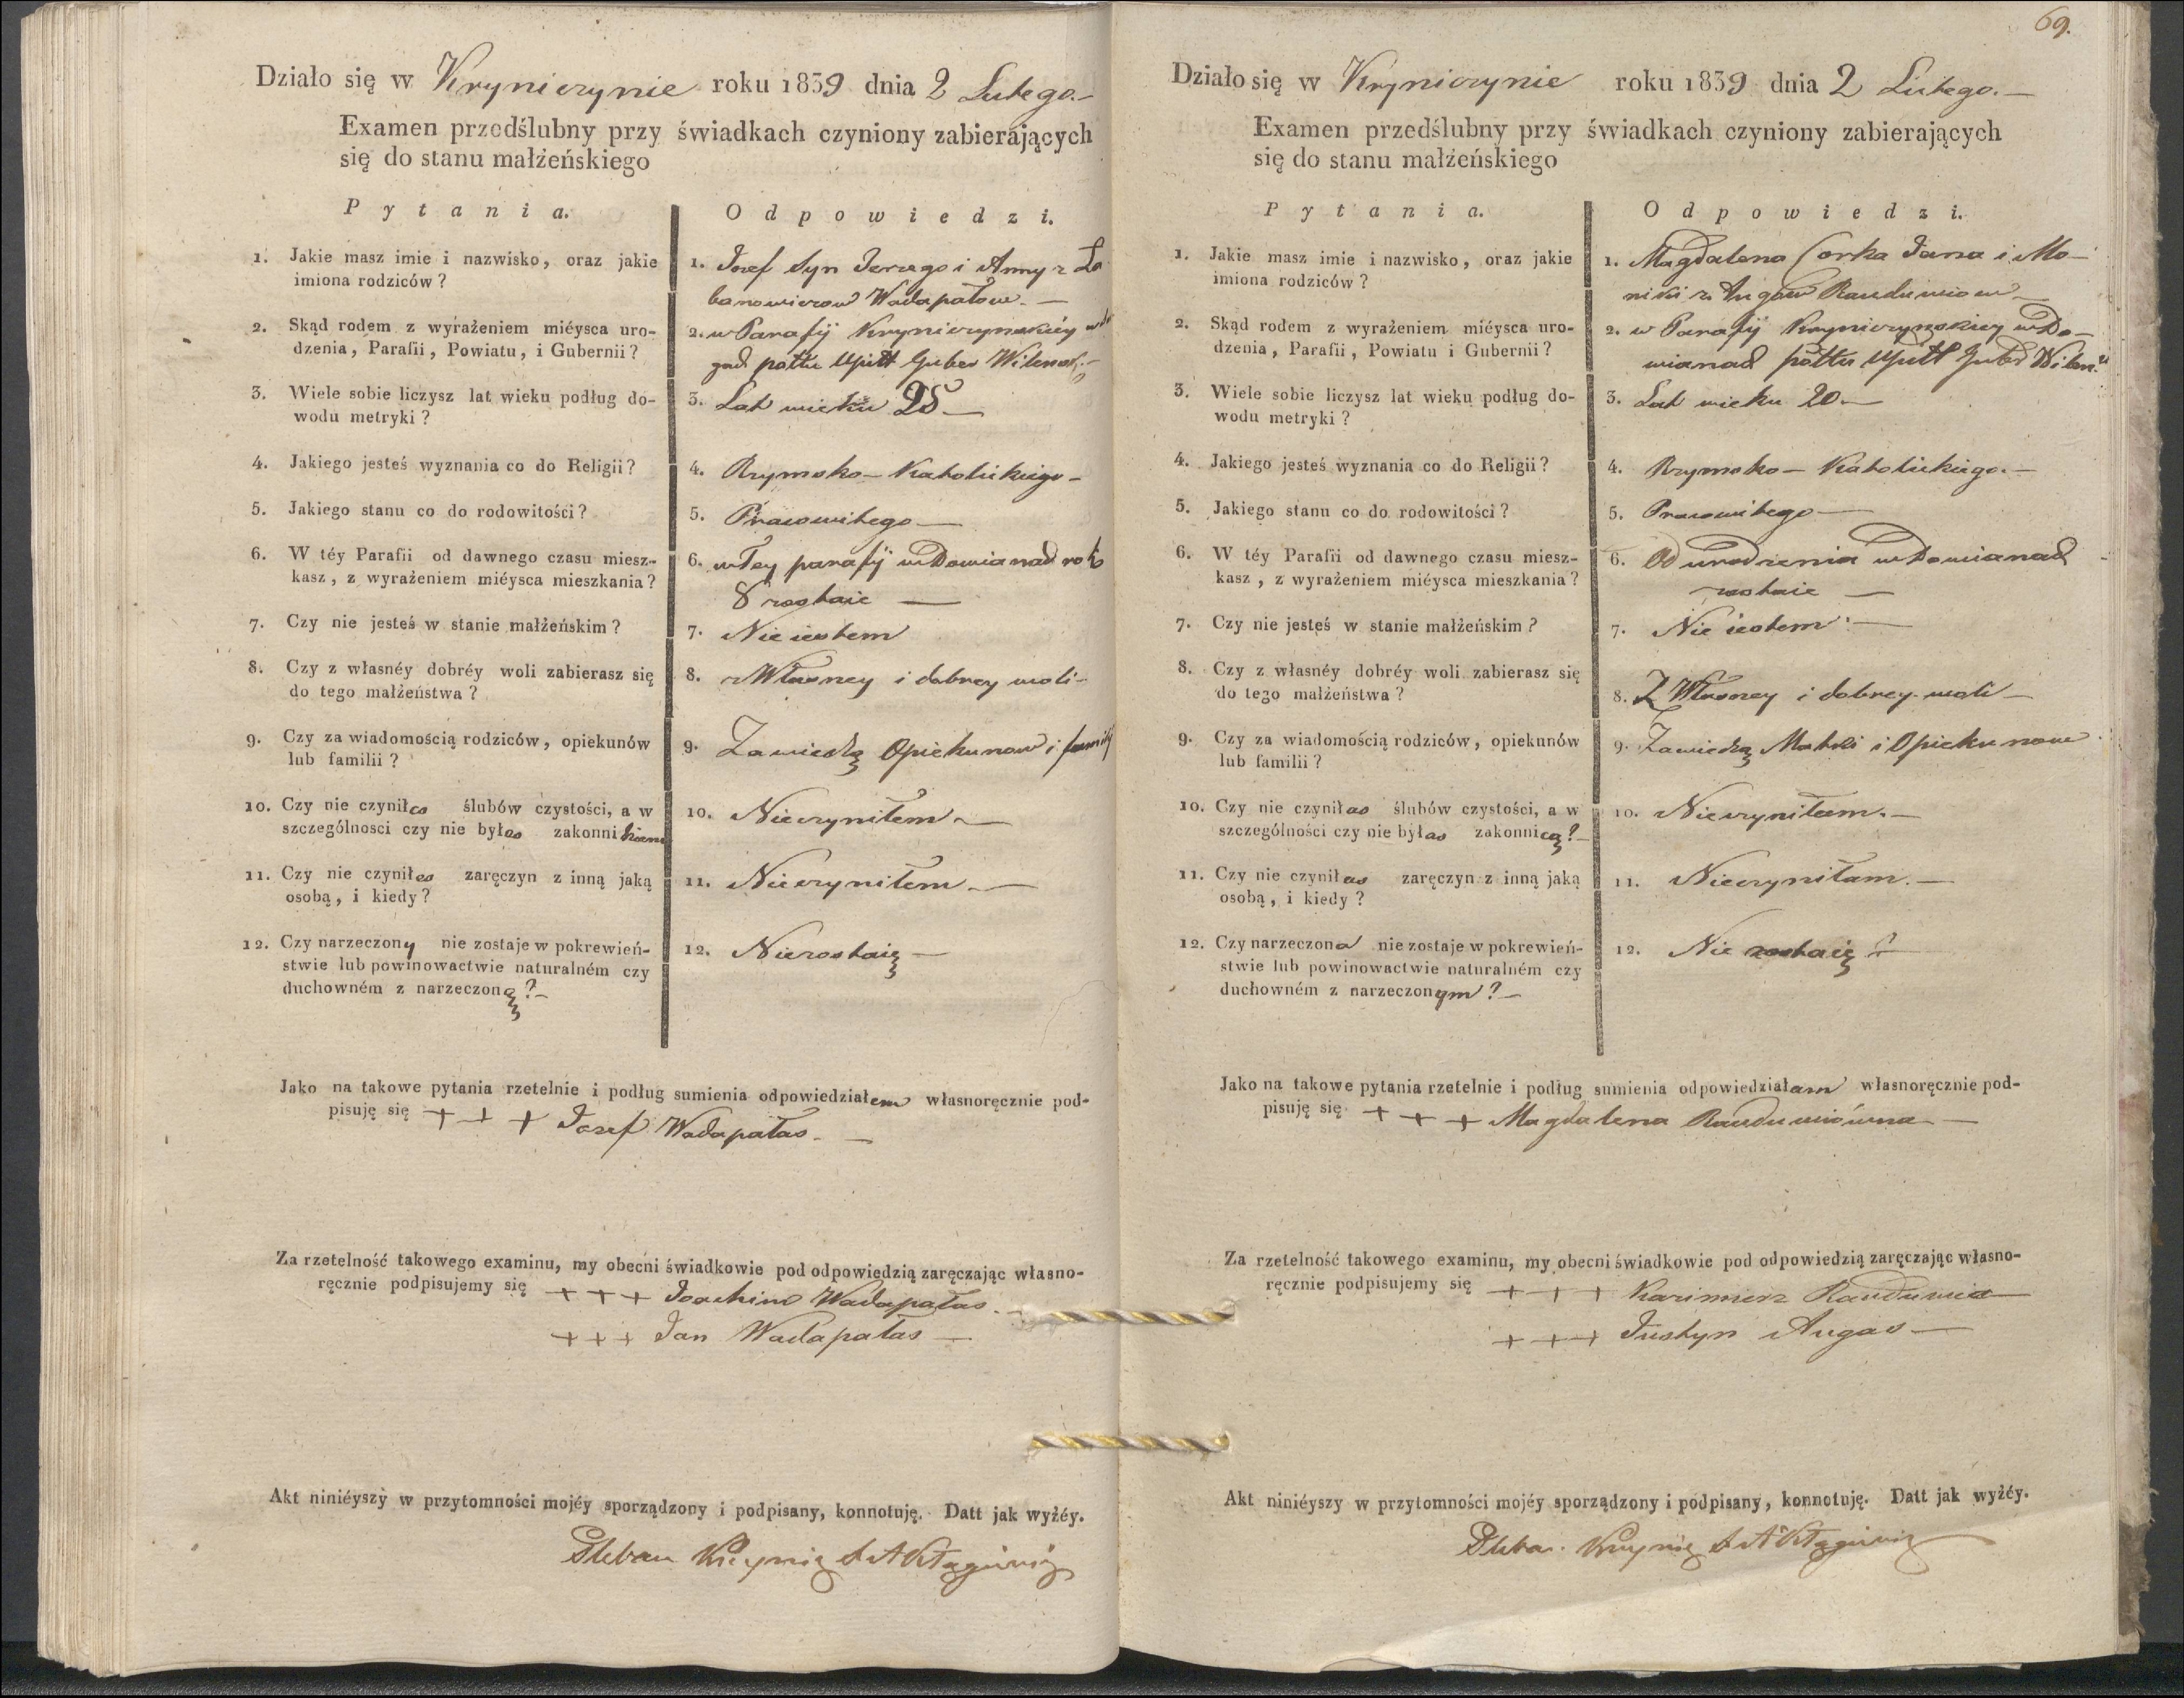 Działo się w Kryniczynie roku 1839 dnia 2 Lutego.–
Examen przedślubny przy świadkach czyniony zabierających
się do stanu małżeńskiego
Pytania. Odpowiedzi.
1. Jakie masz imie i nazwisko, oraz jakie
imiona rodziców?
1. Jozef Syn Jerzego i Anny z Ła
banowiczow Wadapałow.–
2. Skąd rodem z wyrażeniem miéysca uro-
dzenia, Parafii, Powiatu, i Gubernii?
2. w Parafij Kryniczynskiéy
pottu Upitt Guber Wilensk.–
3. Wiele sobie liczysz lat wieku podług do-
wodu metryki?
3. Lat wieku 25 –
4. Jakiego jesteś wyznania co do Religii?
4. Rzymsko – Katolickiego –
5. Jakiego stanu co do rodowitości?
5. Pracowitego –
6. W téy Parafii od dawnego czasu miesz-
kasz, z wyrażeniem miéysca mieszkania?
6. w Tey parafij w Dowianad
8 zostaie –
7. Czy nie jesteś w stanie małżeńskim?
7. Nie iestem
8. Czy z własnéy dobréy woli zabierasz się
do tego małżeństwa?
8. z Własney i dobrey woli –
9. Czy za wiadomością rodziców, opiekunów
lub familii?
9. Zawiedzą Opiekunow i familij
10. Czy nie czyniłes ślubów czystości, a w
szczególnosci czy nie byłes zakonnikiem
10. Nieczyniłem –
11. Czy nie czyniłes zaręczyn z inną jaką
osobą, i kiedy?
11. Nieczyniłem –
12. Czy narzeczony nie zostaje w pokrewień-
stwie lub powinowactwie naturalném czy
duchowném z narzeczoną? –
12. Niezostaię –
Jako na takowe pytania rzetelnie i podług sumienia odpowiedziałem własnoręcznie pod-
pisuję się + + + Jozef Wadapałas. –
Za rzetelność takowego examinu, my obecni świadkowie pod odpowiedzią zaręczając własno-
ręcznie podpisujemy się + + + Joachim Wadapałas. –
+ + + Jan Wadapałas –
Akt niniéyszy w przytomności mojéy sporządzony i podpisany, konnotuję. Datt jak wyżéy.
Pleban
69.
Działo się w Kryniczynie roku 1839 dnia 2 Lutego. –
Examen przedślubny przy świadkach czyniony zabierających
się do stanu małżeńskiego
Pytania. Odpowiedzi.
1. Jakie masz imie i nazwisko, oraz jakie
imiona rodziców?
1. Magdalena Corka Jana i Mo–
niki z Augow Randuwiow –
2. Skąd rodem z wyrażeniem miéysca uro-
dzenia, Parafii, Powiatu i Gubernii?
2. w Parafij Kryniczynskiey w Do–
wianad pottu Upitt Guber Wilen.
3. Wiele sobie liczysz lat wieku podług do-
wodu metryki?
3. Lat wieku 20 –
4. Jakiego jesteś wyznania co do Religii?
4. Rzymsko – Katolickiego. –
5. Jakiego stanu co do rodowitości?
5. Pracowitego –
6. W téy Parafii od dawnego czasu miesz-
kasz, z wyrażeniem miéysca mieszkania?
6. Od urodzenia w Dowianad
zostaie –
7. Czy nie jesteś w stanie małżeńskim?
7. Nie iestem –
8. Czy z własnéy dobréy woli zabierasz się
do tego małżeństwa?
8. Z Własney i dobrey woli –
9. Czy za wiadomością rodziców, opiekunów
lub familii?
9. Zawiedzą Matki i Opiekunow
10. Czy nie czyniłas ślubów czystości, a w
szczególności czy nie byłas zakonnicą? –
10. Nieczyniłam. –
11. Czy nie czyniłas zaręczyn z inną jaką
osobą, i kiedy?
11. Nieczyniłam. –
12. Czy narzeczona nie zostaje w pokrewień-
stwie lub powinowactwie naturalném czy
duchowném z narzeczonym? –
12. Nie zostaię –
Jako na takowe pytania rzetelnie i podług sumienia odpowiedziałam własnoręcznie pod-
pisuję się + + + Magdalena Randuwiówna –
Za rzetelność takowego examinu, my obecni świadkowie pod odpowiedzią zaręczając własno-
ręcznie podpisujemy się + + + Kazimierz Randuwia
+ + + Justyn Augas –
Akt niniéyszy w przytomności mojéy sporządzony i podpisany, konnotuję. Datt jak wyżéy.